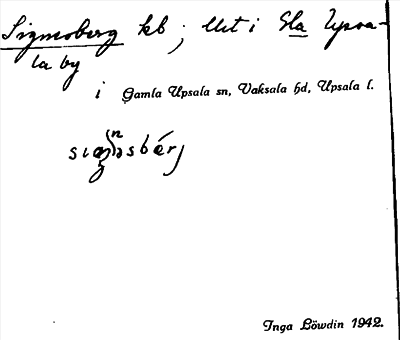 Sigmoberg kb; Utt i Gla Upsa-
la by
i Gamla Upsala sn, Vaksala hd, Upsala l.
Inga Löwdin 1942.